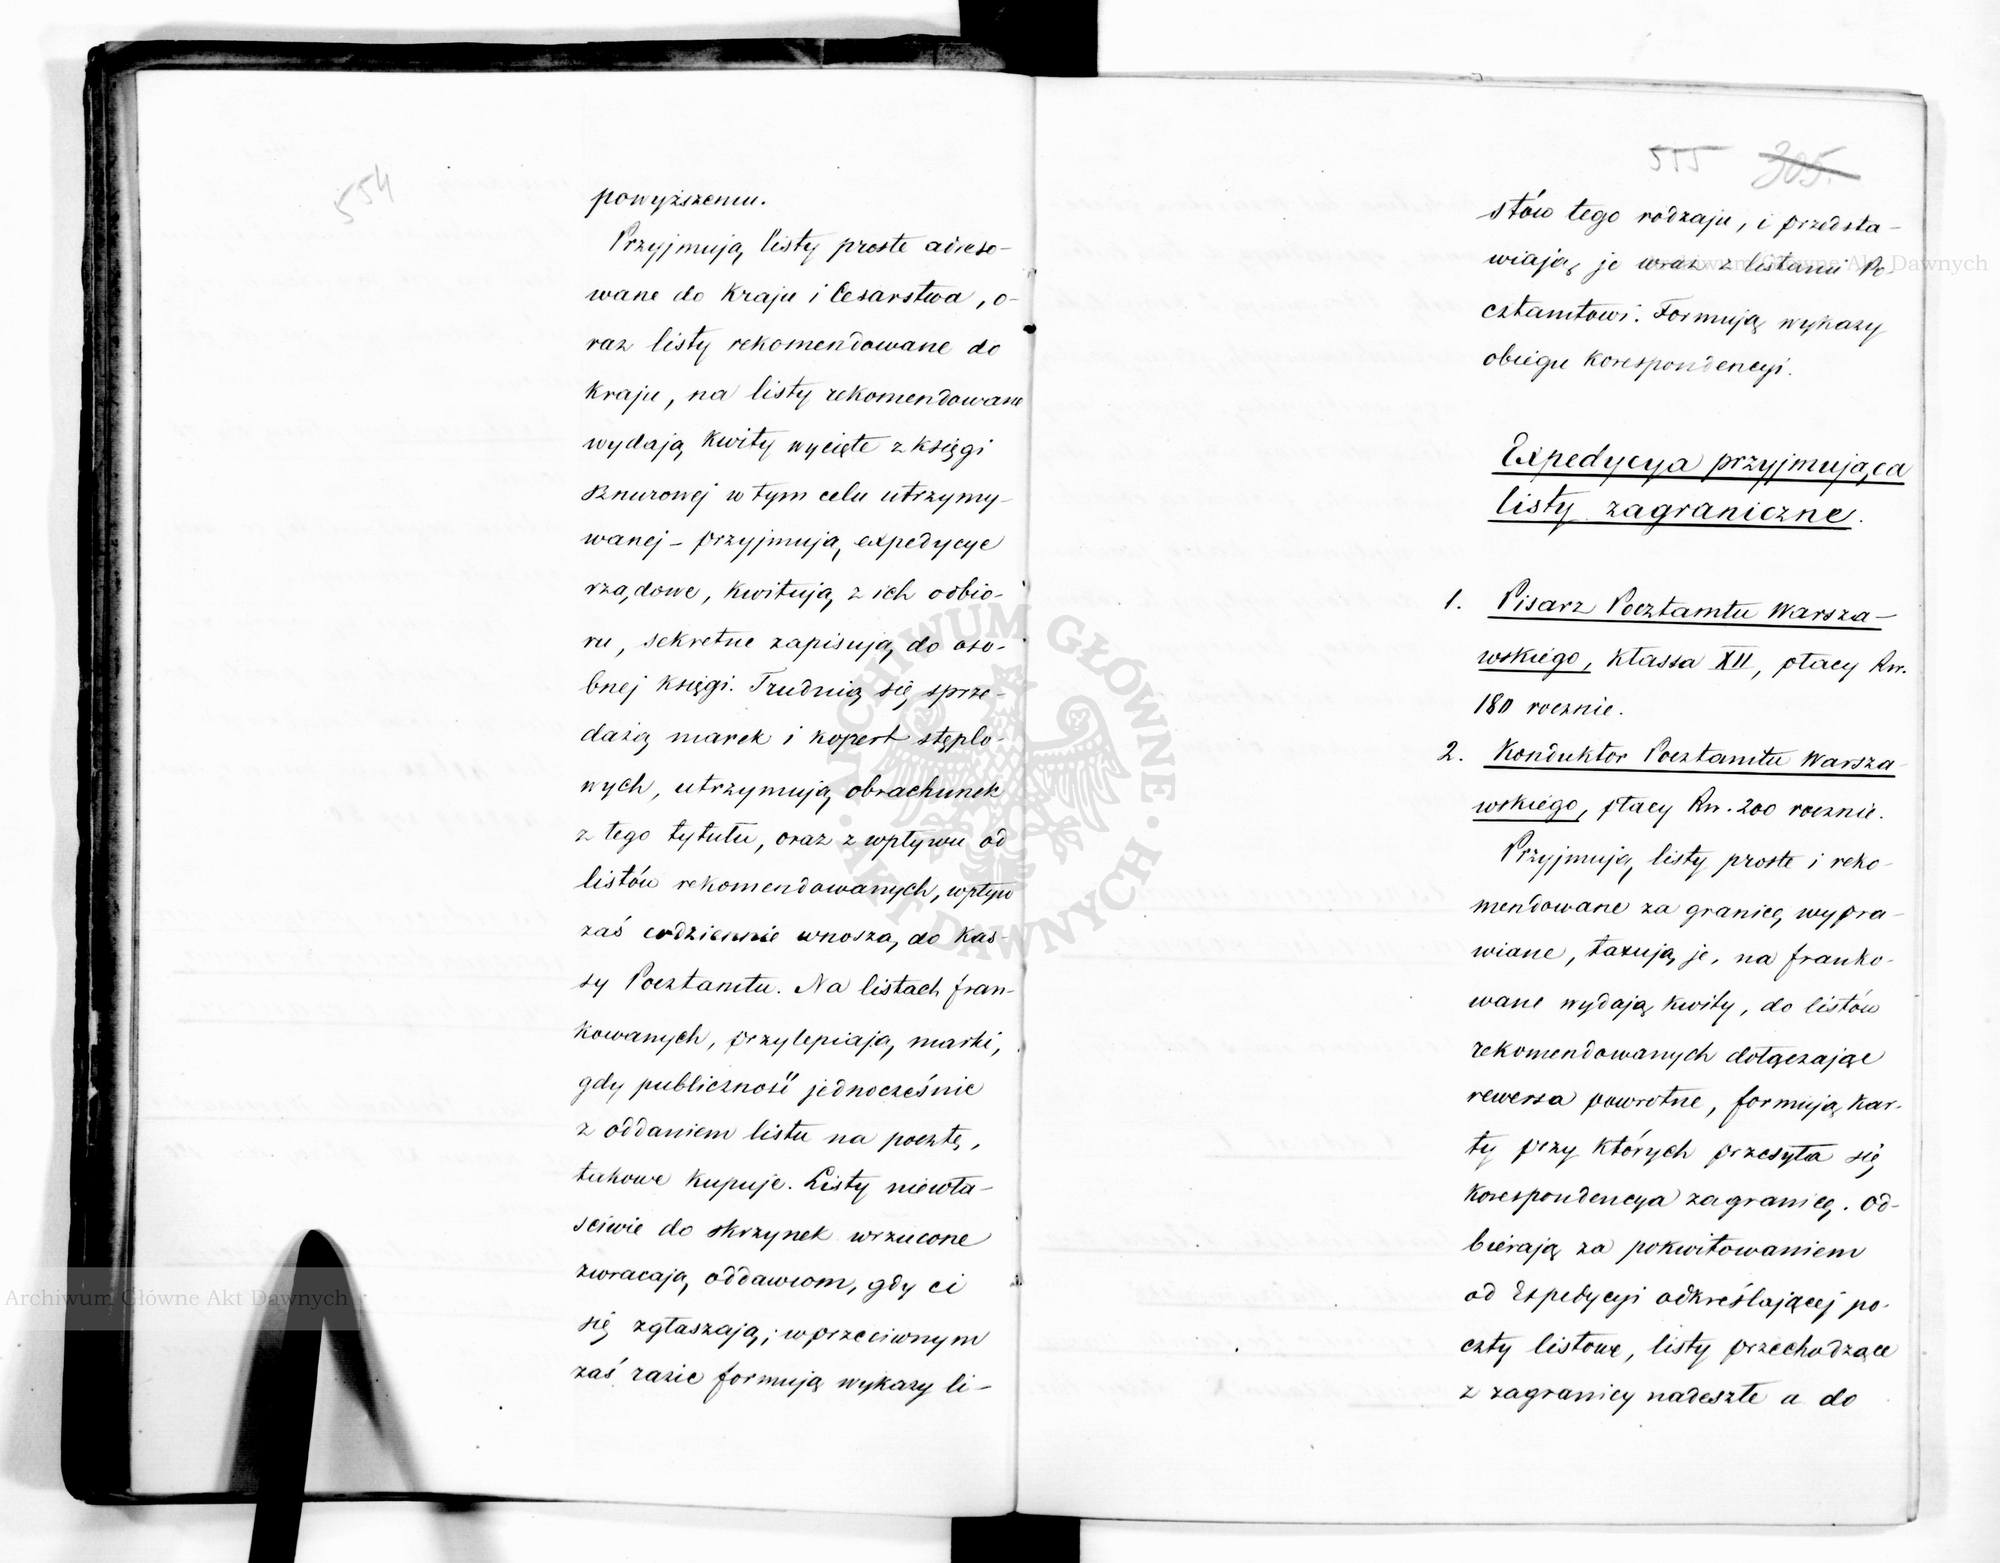 554
powyższemu.
Przyjmują listy proste adreso-
wane do Kraju i Cesarstwa, o-
raz listy rekomendowane do
Kraju, na listy rekomendowane
wydają Kwity wycięte z księgi
sznurowej w tym celu utrzymy-
wanej – przyjmują expedycye
rządowe, Kwitują z ich odbio-
ru, sekretne zapisują do oso-
bnej Księgi. Trudnią się sprze-
dażą marek i kopert stęplo-
wych, utrzymują obrachunek
z tego tytułu, oraz z wpływu od
listów rekomendowanych, wpływ
zaś codziennie wnoszą do Kas-
sy Pocztamtu. Na listach fran-
kowanych, przylepiają marki,
gdy publiczność jednocześnie
z oddaniem listu na pocztę,
takowe Kupuje. Listy niewła-
ściwie do skrzynek wrzucone
zwracają oddawcom, gdy ci
się zgłaszają; w przeciwnym
zaś razie formują wykazy li-
555 305.
stów tego rodzaju, i przedsta-
wiają je wraz z listami Po
cztamtowi. Formują wykazy
obiegu Korespondencyi.
Expedycya przyjmująca
listy zagraniczne.
1. Pisarz Pocztamtu Warsza-
wskiego, Klassa XII, płacy Rs.
180 rocznie.
2. Konduktor Pocztamtu Warsza
wskiego, płacy Rs. 200 rocznie.
Przyjmują listy proste i reko-
mendowane za granicę wypra-
wiane, taxują je, na franko-
wane wydają Kwity, do listów
rekomendowanych dołączając
rewersa powrotne, formują Kar-
ty przy których przesyła się
Korespondencya zagranicę. Od-
bierają za pokwitowaniem
od Expedycyi odkreślającej po-
czty listowe, listy przechodzące
z zagranicy nadeszłe a do
ARCHIWUM GŁÓWNE · AKT DAWNYCH ·
Archiwum Główne Akt Dawnych
Archiwum Główne Akt Dawnych